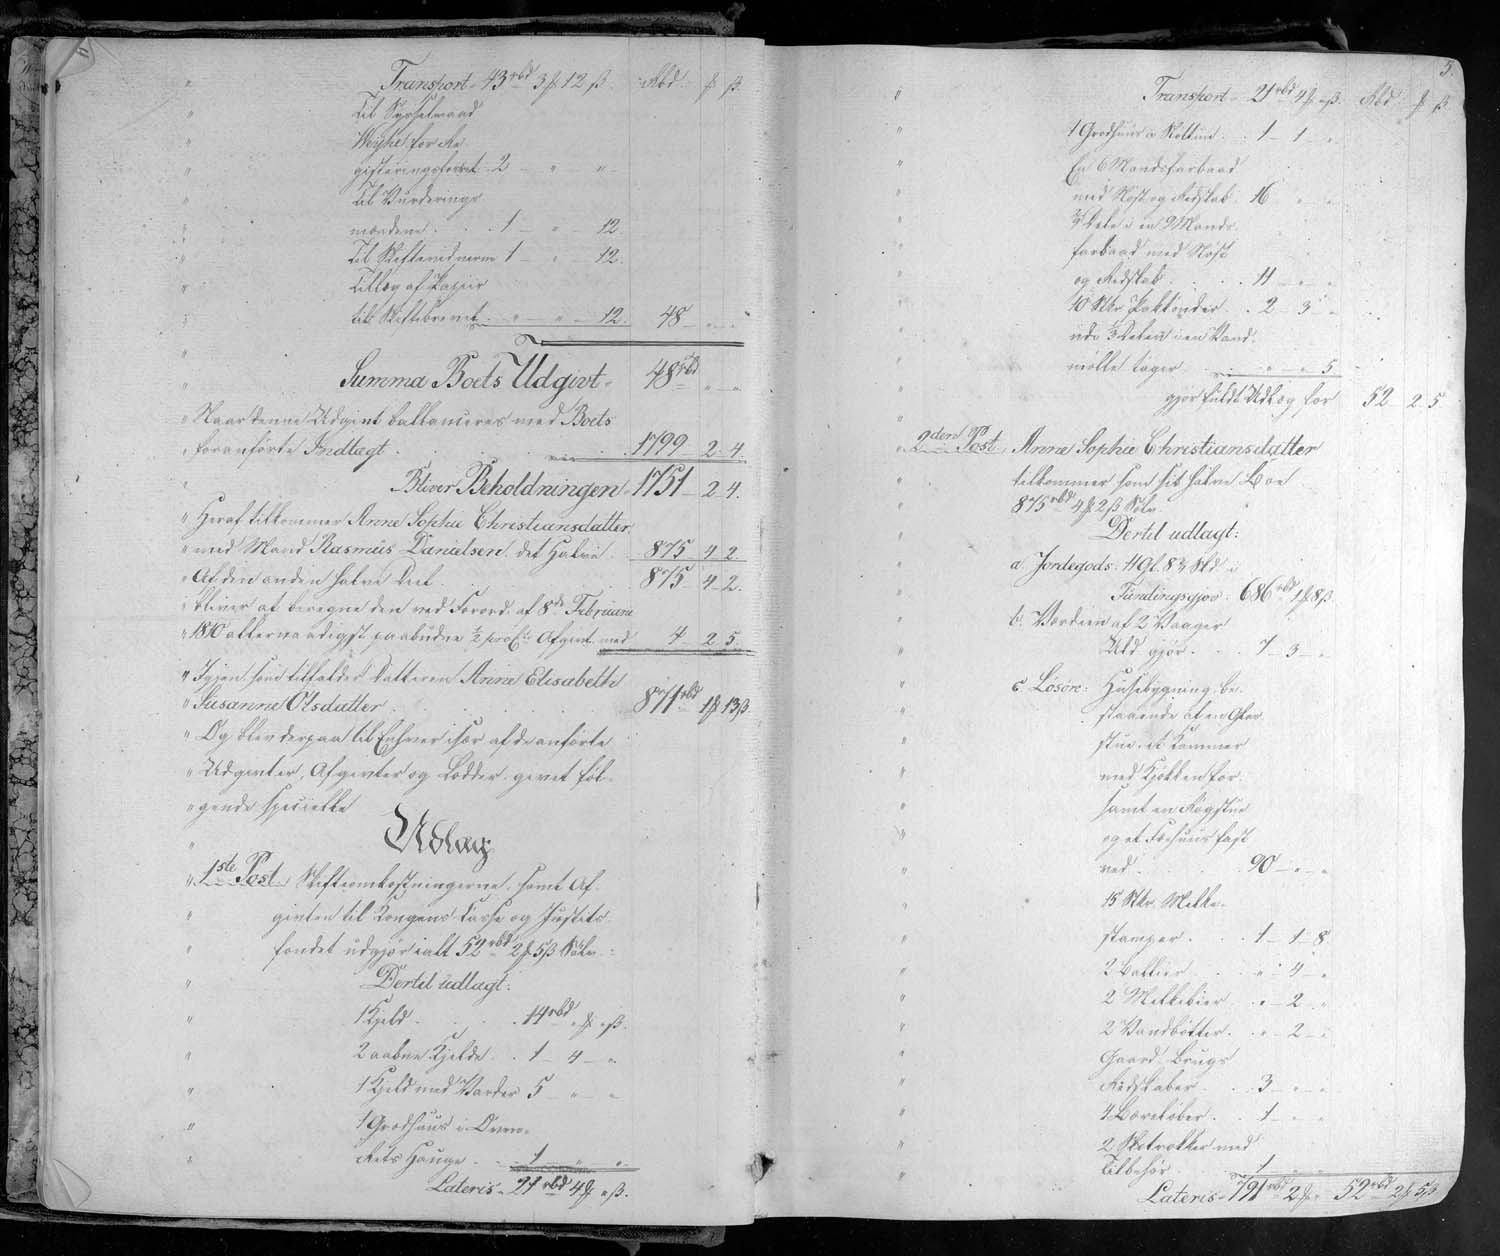 " Transport - 43 rbd 3 ℔ 12 ß. Rbd ℔ ß
" Til Sysselmand
" Weyhe for Re
" gisteringsforret. 2 - " - "
" Til Vurderings
" mændene . . 1 - " - 12.
" Til Skiftevidnerne 1 - " - 12.
" Tillæg af Papiir
" til Skiftebrevet . " - " - 12. 48 - " - "
" Summa Boets Udgivt - 48 rbd " - "
" Naar denne Udgivt ballanceres med Boets
" foranførte Indtægt . . . 1799 - 2 - 4.
" Bliver Beholdningen - 1751 - 2 - 4.
" Heraf tilkommer Anne Sophie Christiansdatter
" med Mand Rasmus Danielsen det Halve . 875 - 4 - 2.
" Af den anden halve Deel . 875 - 4 - 2.
" bliver at beregne den ved Forord. af 8de Februarii
" 1810 allernaadigst paabudne ½ pro Ct. Afgivt med 4 - 2 - 5.
" Igjen som tilfalder Datteren Anne Elisabeth
" Susanne Olsdatter . . . 871 rbd 1 ℔ 13 ß
" Og blev derpaa til Enhver især af de anførte
" Udgivter, Afgivter og Lodder givet føl-
" gende specielle
" Udlæg
" 1ste Post. Skifteomkostningerne, samt Af-
" givten til Kongens Casse og Justits-
" fondet udgjør ialt 52 rbd 2 ℔ 5 ß Sølv.
" Dertil udlagt:
" 1 Hjeld . . . 14 rbd " ℔ " ß.
" 2 aabne Hjelde . . 1 - 4 - "
" 1 Hjeld med Varder 5 - " - "
" 1 Grodhuus i
" Hauge . . 1 - " - "
Lateris - 21 rbd 4 ℔ " ß.
5.
" Transport - 21 rbd 4 ℔ " ß. Rbd ℔ ß
" 1 Grodhuus . . 1 - 1 - "
" En 6 Mandsfarbaad
" med Nøst og Redskab . 16 - " - "
" Dele i en 9 Mands-
farbaad med Nøst
" og Redskab . . . 11 - " - "
" 10 Stkr . 2 - 3 - "
" udi Delen i en Vand-
" mølle tager . . " - " - 5
gjør fuldt Udlæg for 52 - 2 - 5
" 2den Post. Anne Sophie Christiansdatter
" tilkommer som sit halve Boe
" 875 rbd 4 ℔ 2 ß Sølv.
" Dertil udlagt:
" a. Jordegods: 11 Gl. 8¾ Skd i
" . 686 rbd 1 ℔ 8 ß.
" b. Værdien af 2 Vaager
" Uld gjør . . . 7 - 3 - "
" c. Løsøre: Huusebygning be-
" staaende af en Glas-
" stue, et Kammer
" med Kjøkken for,
" samt en Røgstue
" og et Fæhuus fast
" ved . . . . 90 - " - "
" 15 Stkr. Melke-
" stamper . . . 1 - 1 - 8.
" 2 Ballier . . . " - 4 - "
" 2 . " - 2 - "
" 2 Vandbøtter . . " - 2 - "
" Gaard-Brugs
" Redskaber . . . 3 - " - "
" 4 . . 1 - " - "
" 2 med
" Tilbehør . . . 1
Lateris - 791 rbd 2 ℔ " 52 rbd 2 ℔ 5 ß